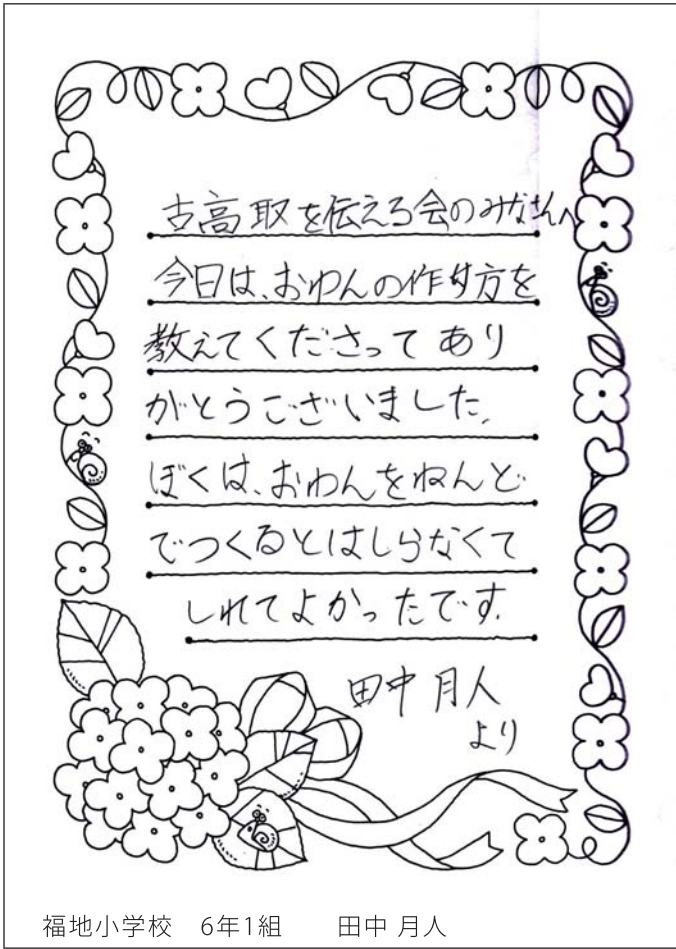 古高取を伝える会のみなさんへ
今日は、おわんの作り方を
教えてくださって あり
がとうございました。
ぼくは、おわんをねんど
でつくるとはしらなくて
しれてよかったです。
田中 月人
より
福地小学校 6年1組 田中 月人